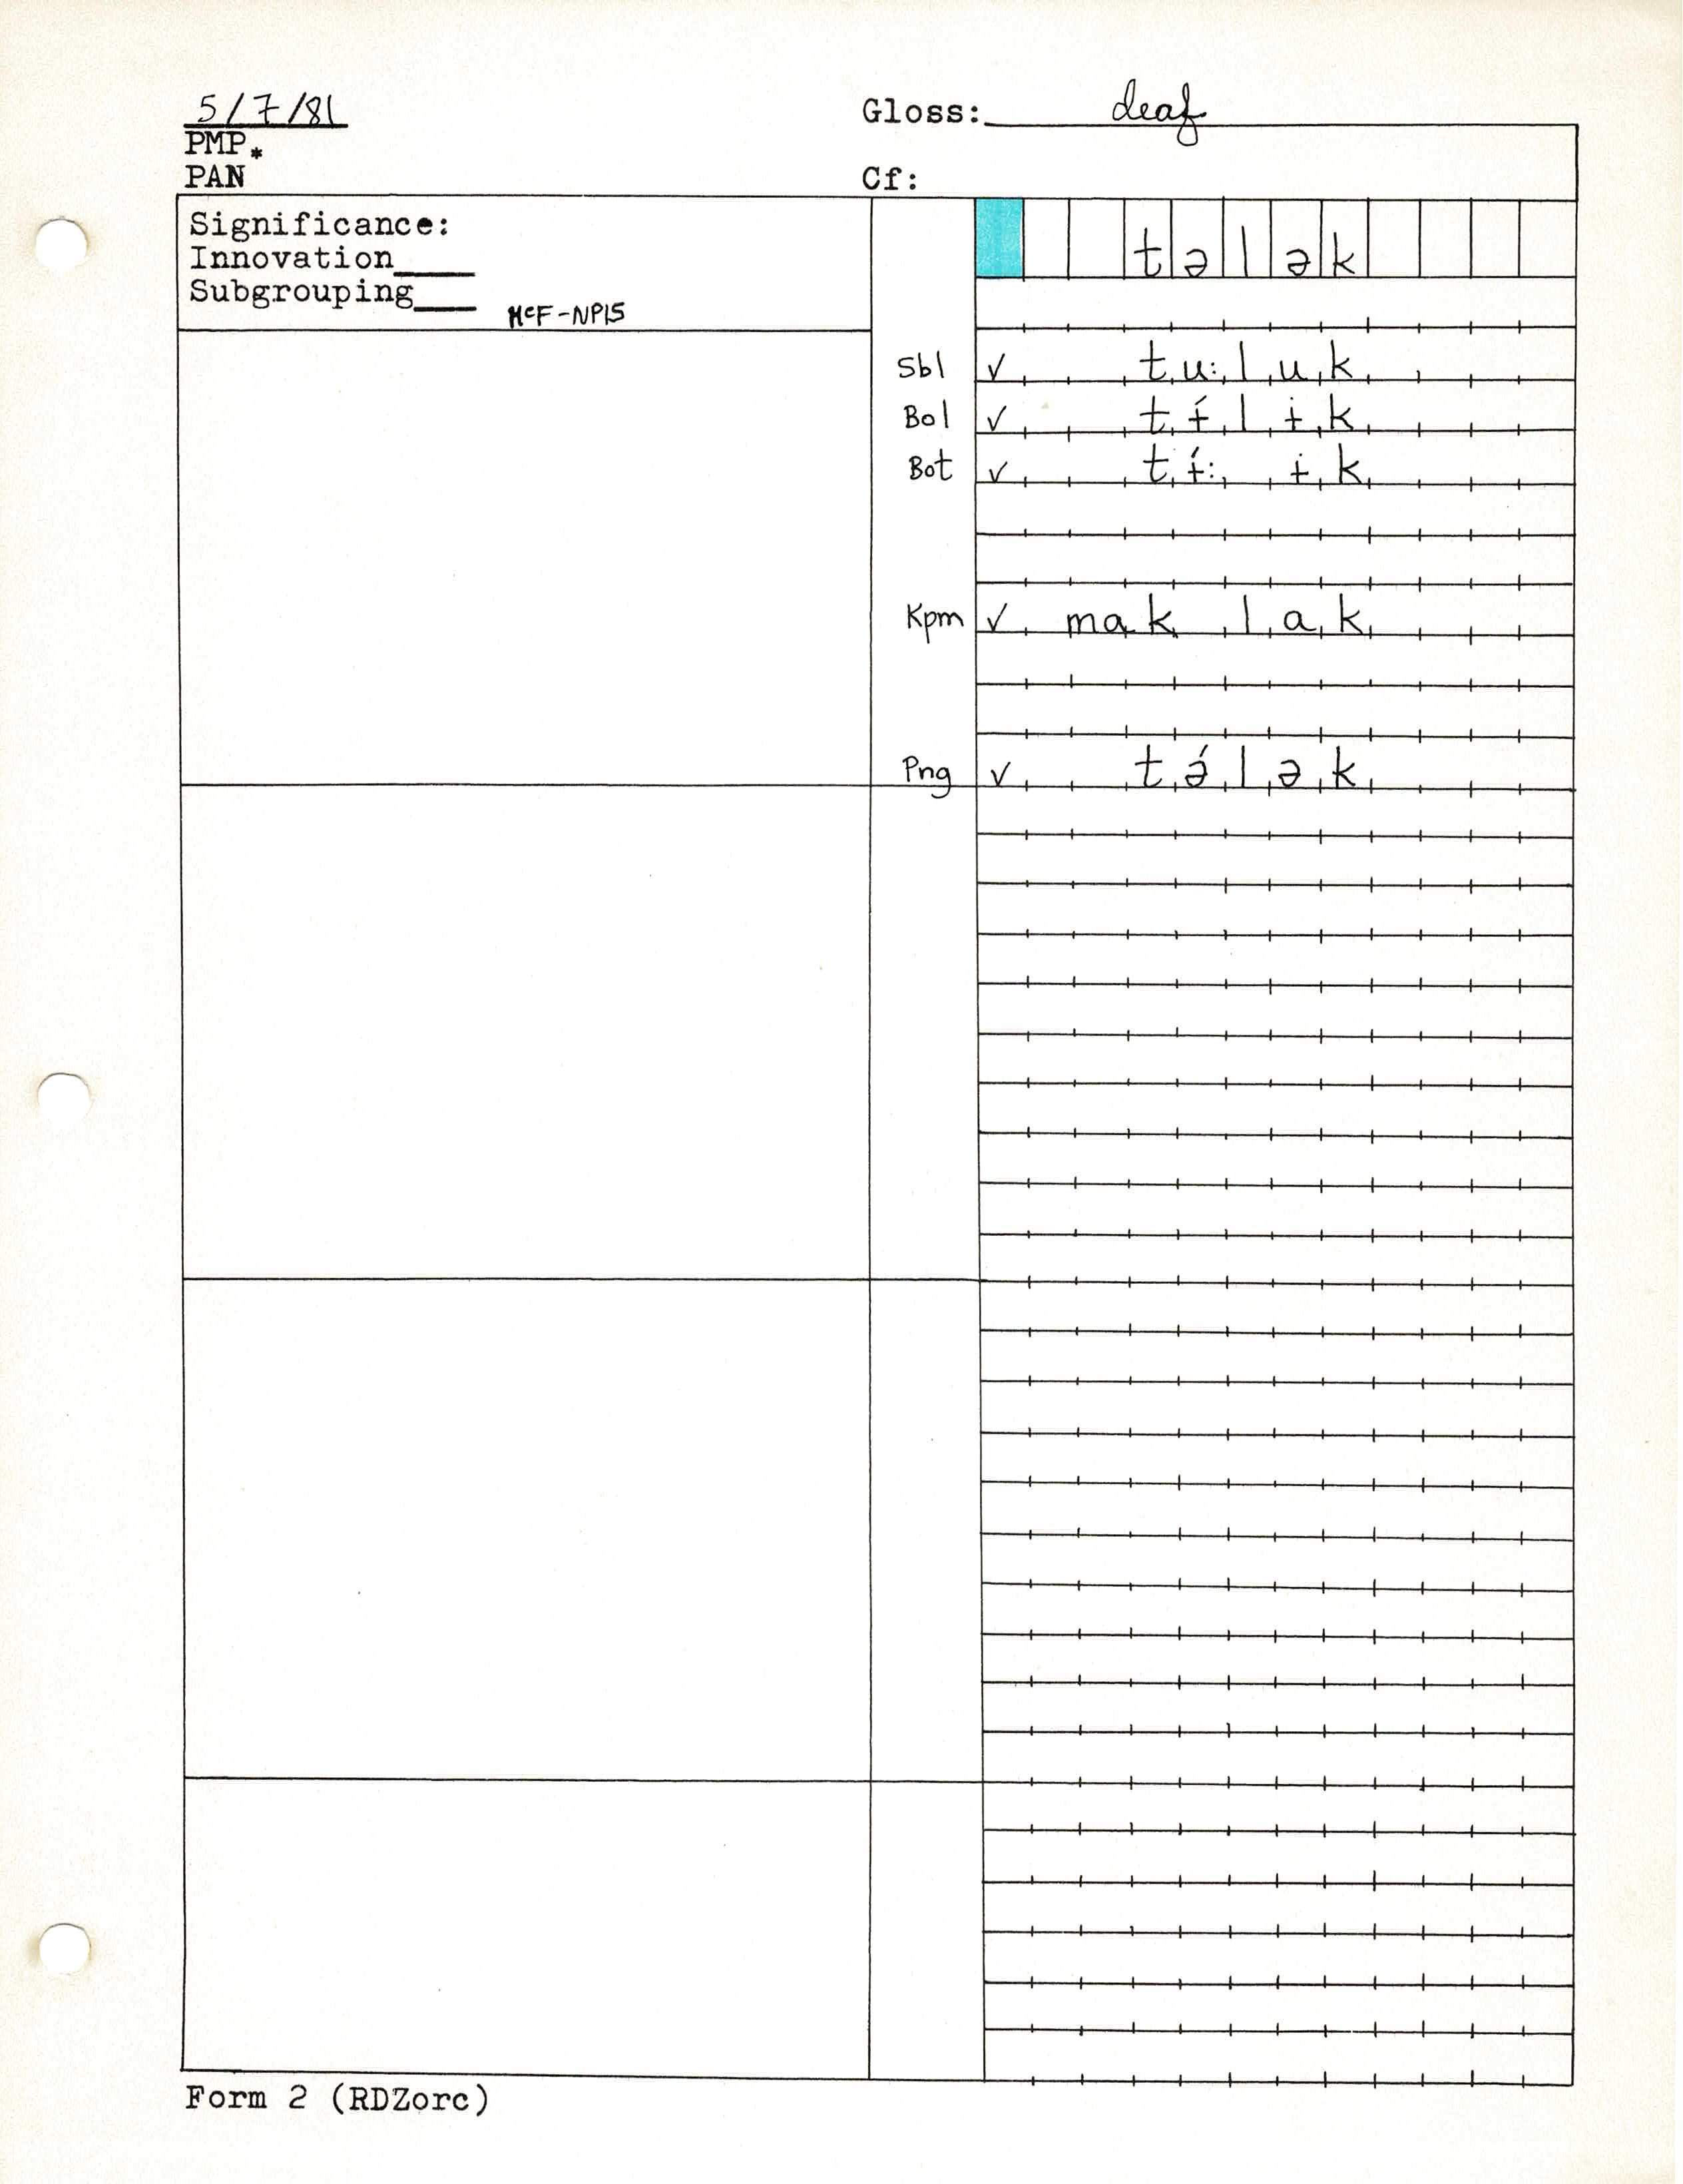 5/7/81 Gloss: deaf
PMP*
PAN Cf:
Significance:
Innovation____
Subgrouping____
McF-NPIS
tələk
Sbl ✓ tu:luk
Bol ✓ tɨ́lɨk
Bot ✓ tɨ́:ɨk
Kpm ✓ mak lak
Png ✓ tə́lək
Form 2 (RDZorc)